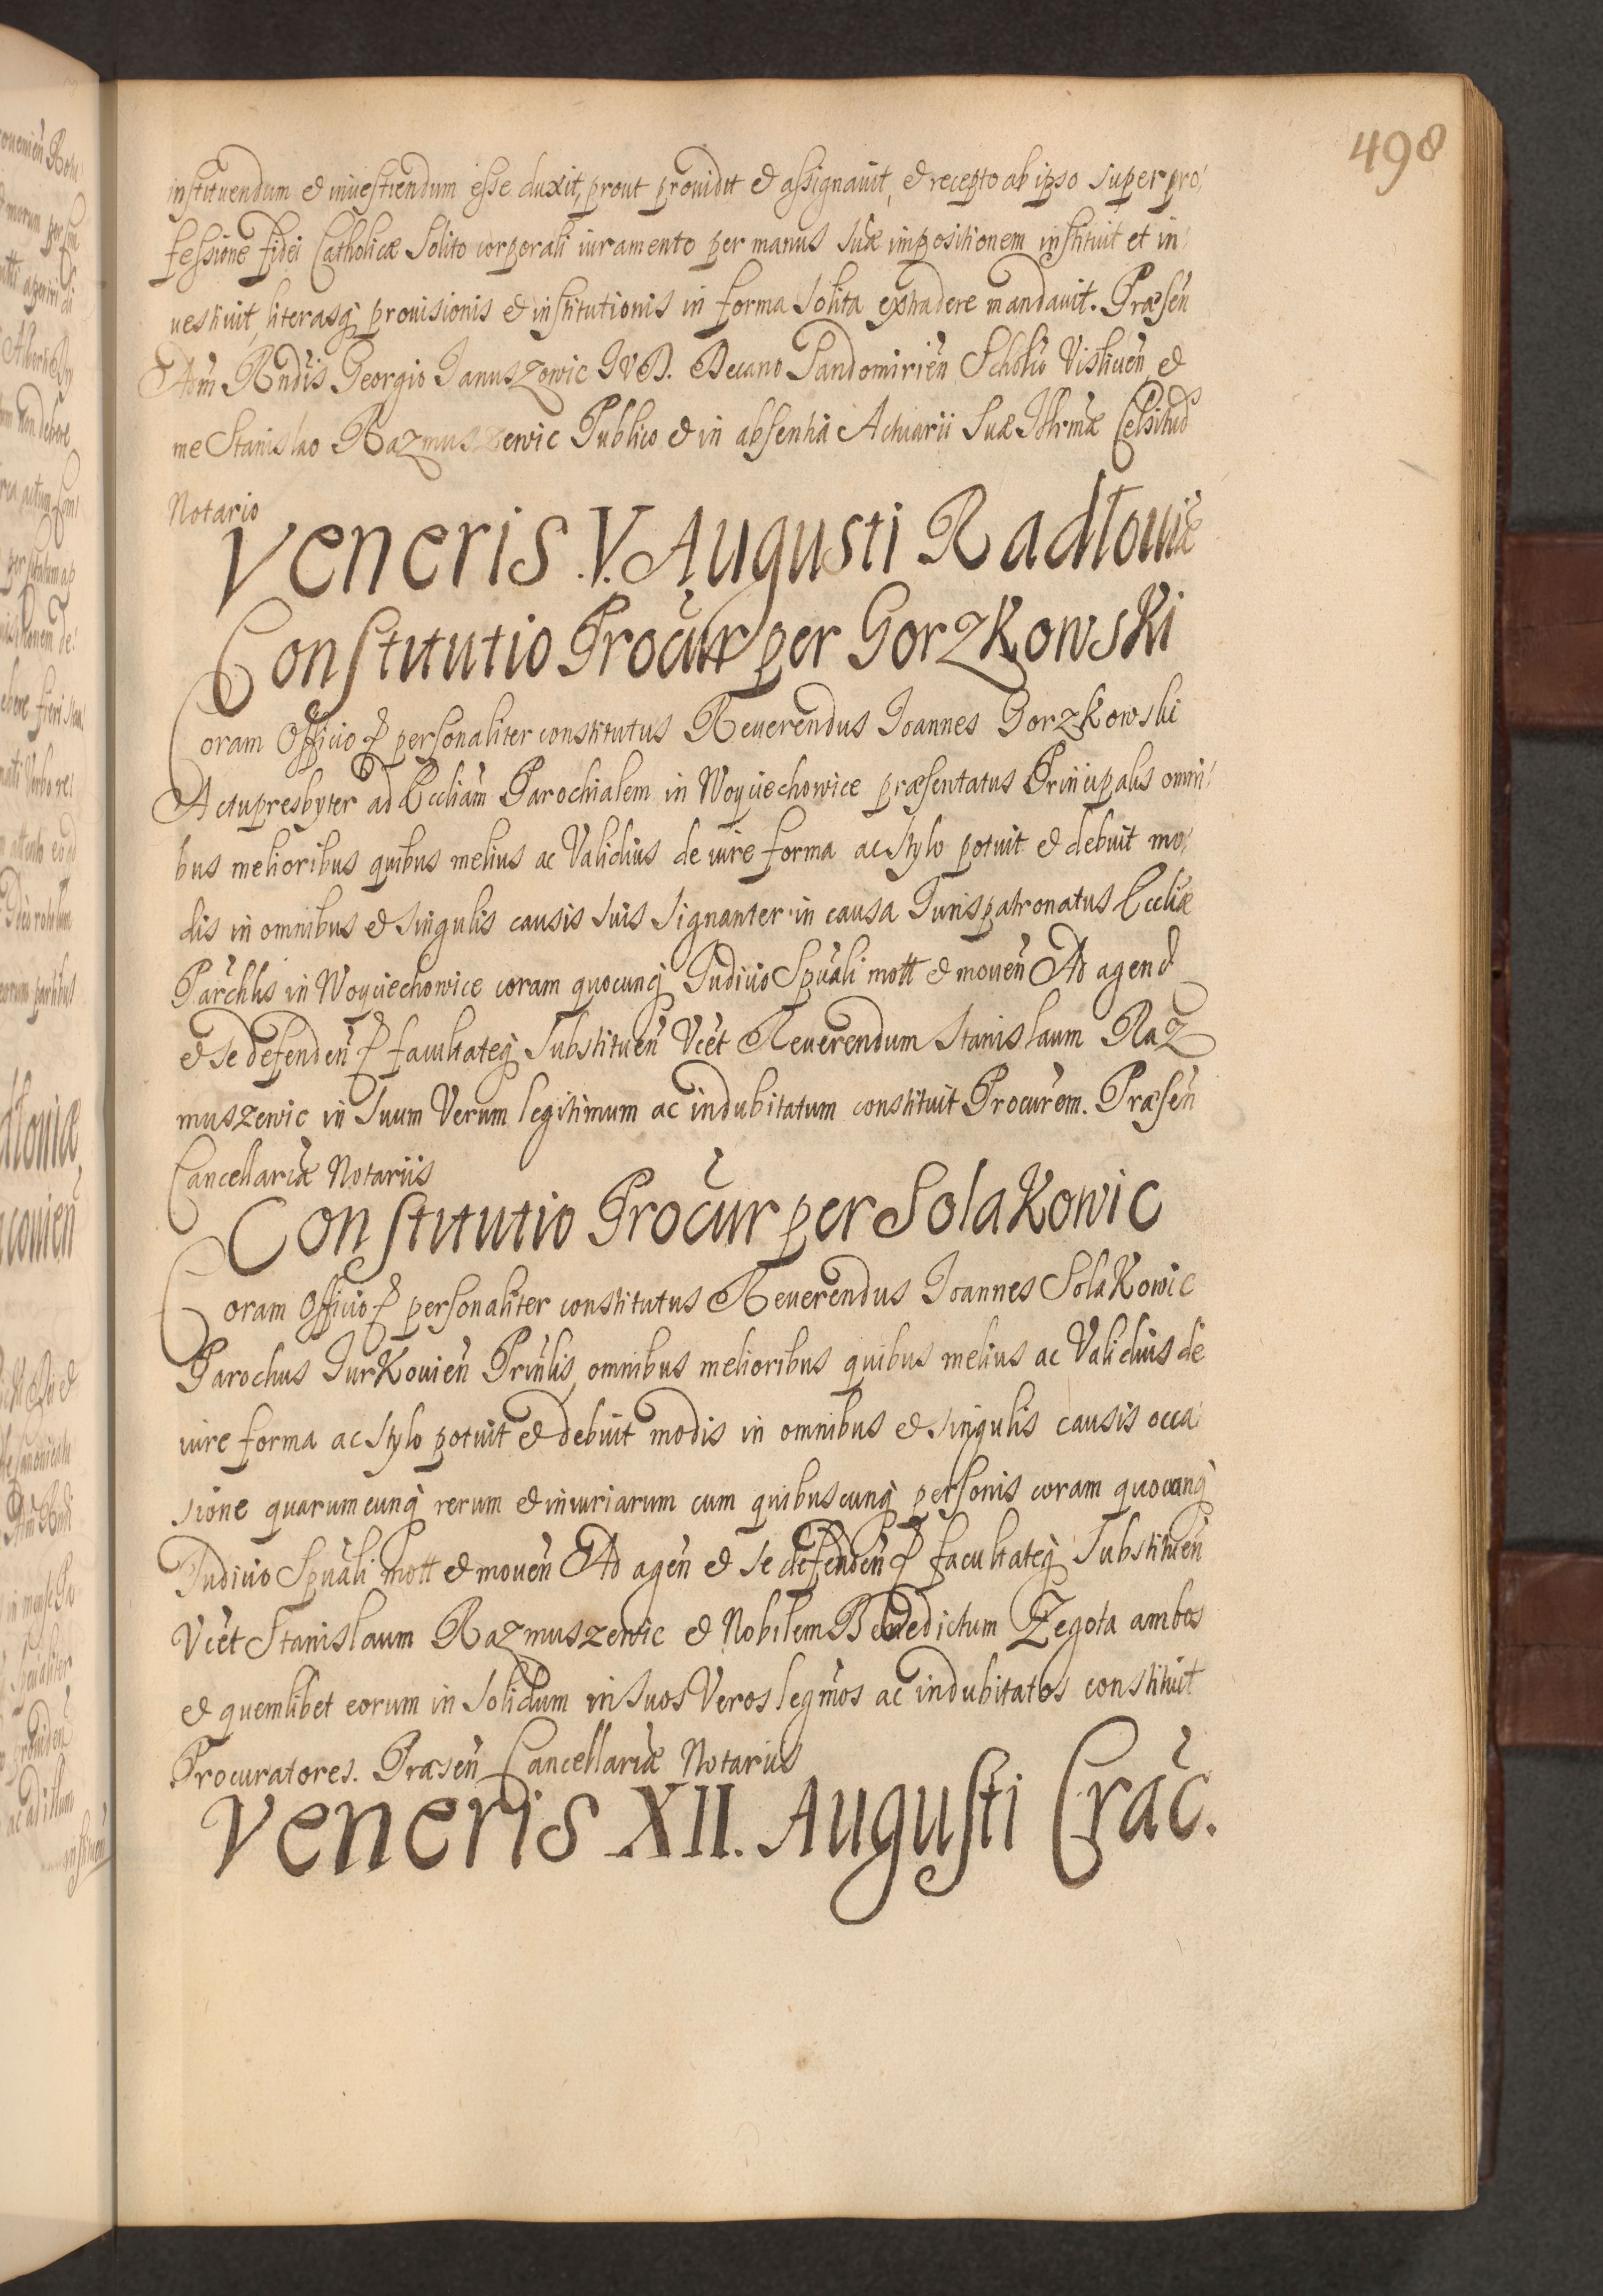 498
instituendum et inuestiendum esse duxit, prout prouidit et assignauit, et recepto ab ipso super pro,
fessione fidei Catholicæ solito corporali iuramento per manus suæ impositionem instituit et in,
uestiuit, literasq́ prouisionis et institutionis in forma solita extradere mandauit. Præsen̄
Adm̄ Rndīs Georgio Januszowic JVD. Decano Sandomirien̄ Schol̄io Visliuen̄, et
me Stanislao Razmuszewic Publico et in absentia Actuarii Suæ Illrmæ Celsitud
Notario
Veneris .V. Augusti Radłouiæ
Constitutio Procur̄ per Gorzkowski
Coram Officio etc personaliter constitutus Reuerendus Joannes Gorzkowski
Actupresbyter ad Eccliam̄ Parochialem in Woyciechowice præsentatus Principalis omni,
bus melioribus quibus melius ac Validius de iure forma ac stylo potuit et debuit mo,
dis in omnibus et singulis causis suis signanter in causa Jurispatronatus Eccliæ
Parchlis in Woyciechowice coram quocunq́ Judicio Spuāli mott et mouen̄ Ad agend
et se defenden̄ etc facultateq́ substituen̄ Vcēt Reuerendum Stanislaum Raz
muszewic in suum Verum legitimum ac indubitatum constituit Procurēm. Præsen̄
Cancellariæ Notariis
Constitutio Procur̄ per Solakowic
Coram Officio etc personaliter constitutus Reuerendus Joannes Solakowic
Parochus Jurkouien̄ Prin̄lis, omnibus melioribus quibus melius ac Validius de
iure forma ac stylo potuit et debuit modis in omnibus et singulis causis occa,
sione quarumcunq́ rerum et iniuriarum cum quibuscunq́ personis coram quocunq́
Judicio Spuāli mott et mouen̄ Ad agen̄ et se defenden̄ etc facultateq́ substituen̄
Vcēt Stanislaum Razmuszewic et Nobilem Benedictum Zegota ambos
et quemlibet eorum in solidum in suos Veros legm̄os ac indubitatos constituit
Procuratores. Præsen̄ Cancellariæ Notariis
Veneris XII. Augusti Crāc.